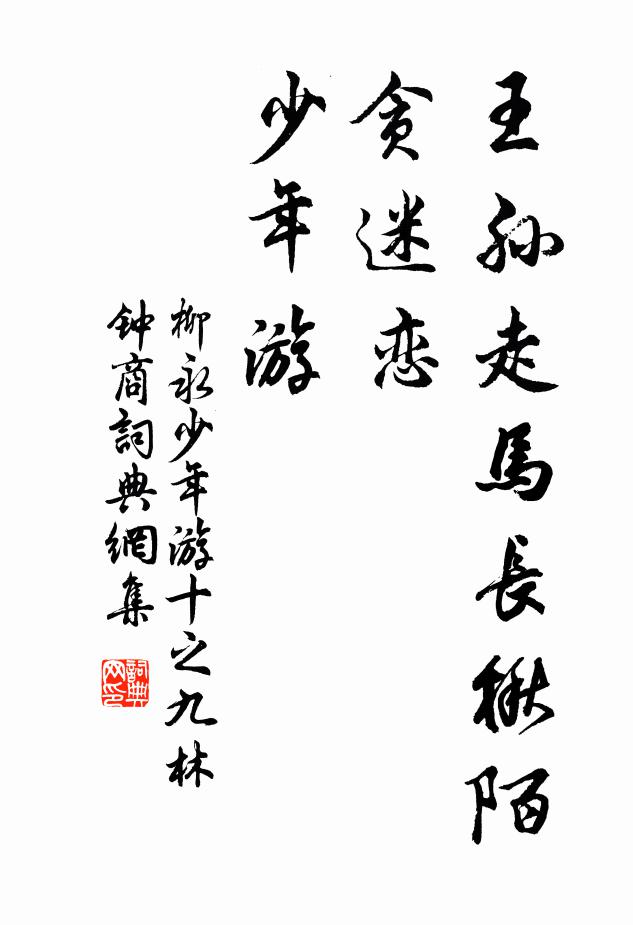 王孙走馬長楸陌
贪迷恋
少年游
柳永少年游十之九林
钟商詞典網集
詞典
网印